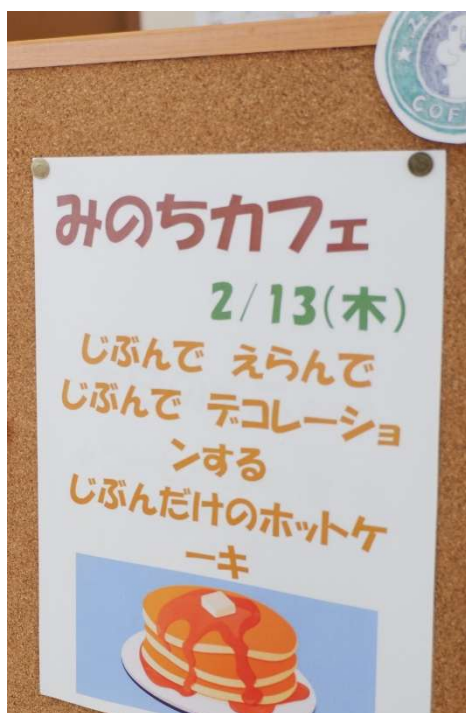 COF
みのちカフェ
2/13(木)
じぶんで えらんで
じぶんで デコレーショ
ンする
じぶんだけのホットケ
ーキ